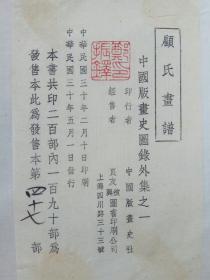 顧氏畫譜
中國版畫史圖錄外集之一
印行者 中國版畫史社
經售者 良友復興圖書印刷公司
上海四川路三十三號
中華民國三十年二月十日印刷
中華民國三十年五月一日發行
本書共印二百部內一百九十部爲
發售本此爲發售本第四十七部